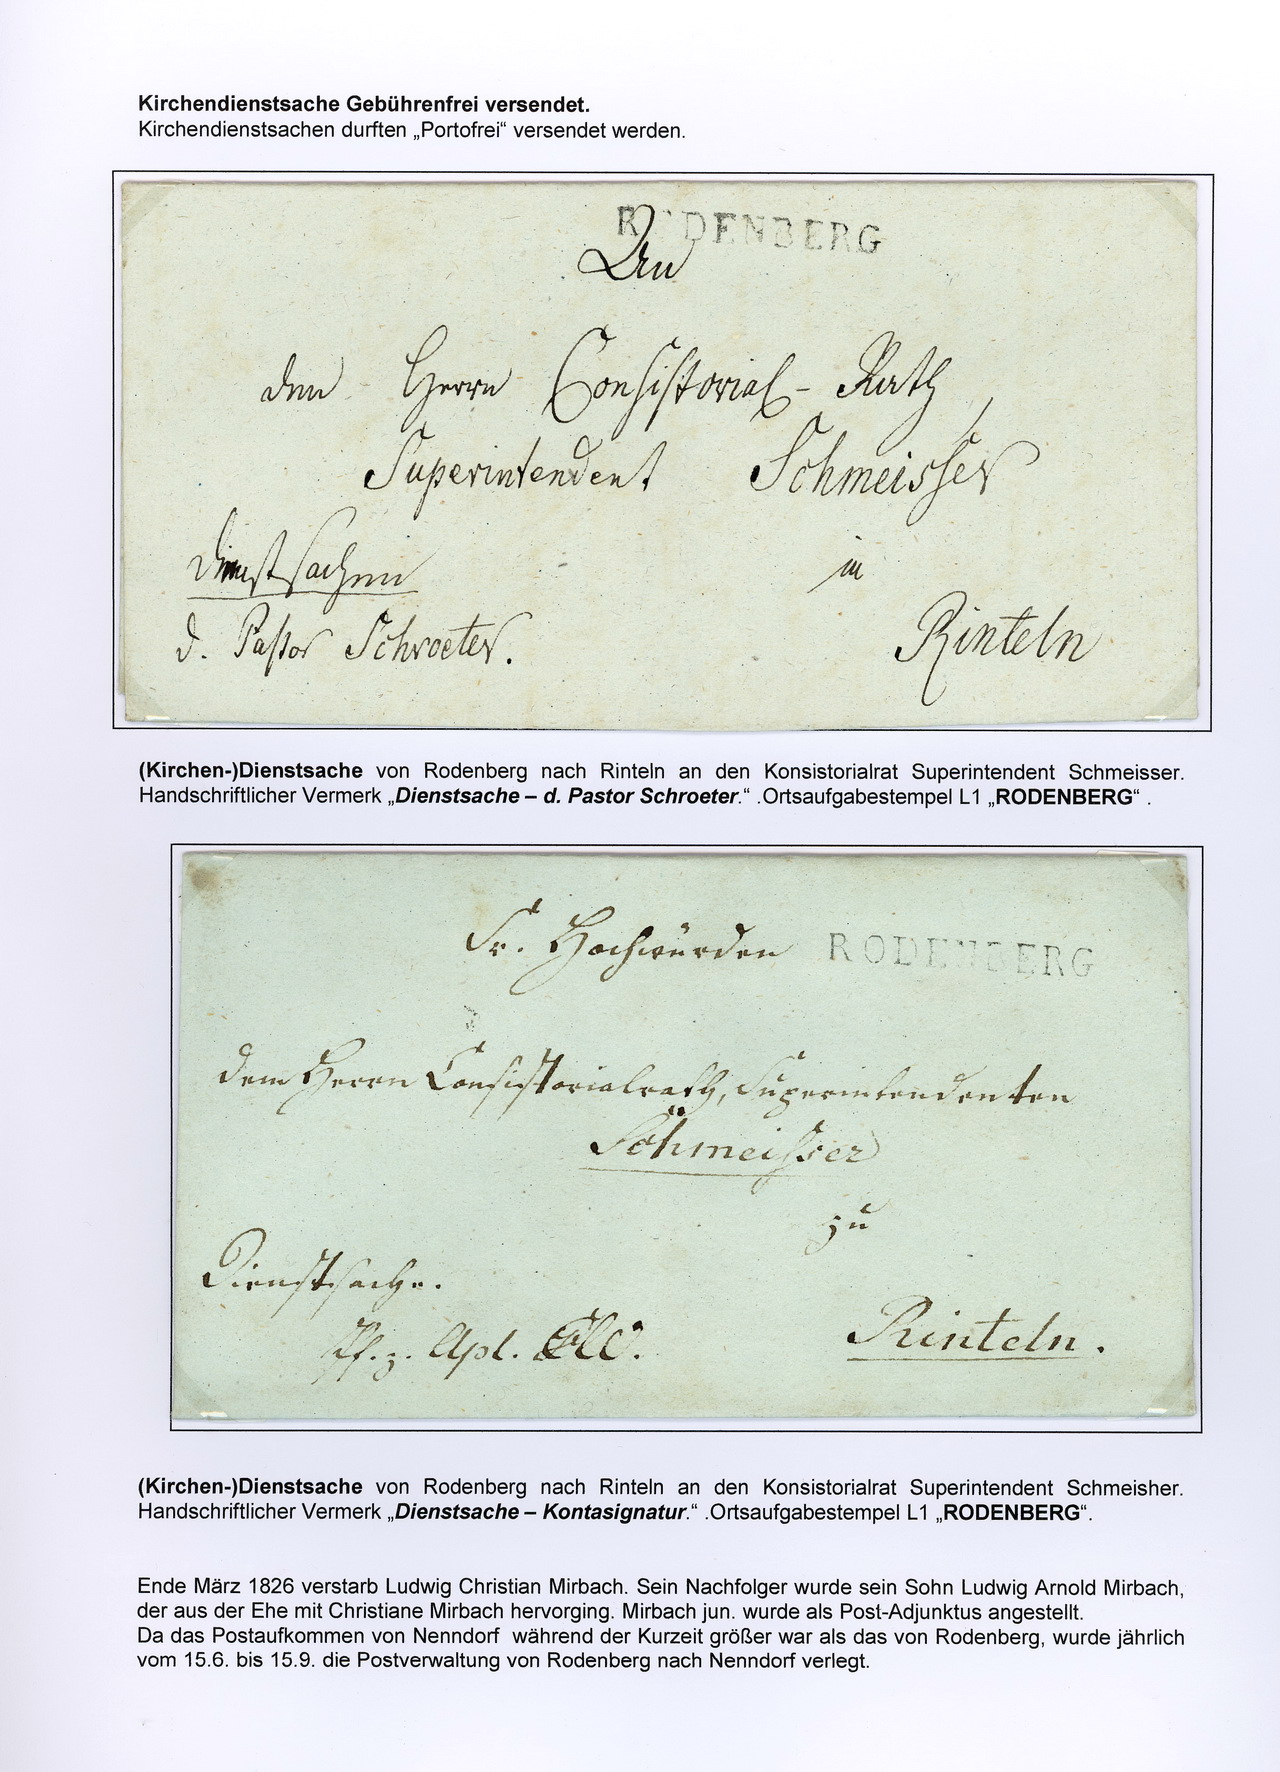 Kirchendienstsache Gebührenfrei versendet.
Kirchendienstsachen durften „Portofrei“ versendet werden.
RODENBERG
An
den Herrn Consistorial-Rath,
Superintendent Schmeisser
Dienstsachen
in
d. Pastor Schroeter.
Rinteln
(Kirchen-)Dienstsache von Rodenberg nach Rinteln an den Konsistorialrat Superintendent Schmeisser.
Handschriftlicher Vermerk „Dienstsache – d. Pastor Schroeter.“ .Ortsaufgabestempel L1 „RODENBERG“ .
Sr. Hochwürden RODENBERG
dem Herrn Consistorialrath, Superintendenten
Schmeisser
zu
Dienstsache.
Pf. z. Apl.
Rinteln.
(Kirchen-)Dienstsache von Rodenberg nach Rinteln an den Konsistorialrat Superintendent Schmeisher.
Handschriftlicher Vermerk „Dienstsache – Kontasignatur.“ .Ortsaufgabestempel L1 „RODENBERG“.
Ende März 1826 verstarb Ludwig Christian Mirbach. Sein Nachfolger wurde sein Sohn Ludwig Arnold Mirbach,
der aus der Ehe mit Christiane Mirbach hervorging. Mirbach jun. wurde als Post-Adjunktus angestellt.
Da das Postaufkommen von Nenndorf während der Kurzeit größer war als das von Rodenberg, wurde jährlich
vom 15.6. bis 15.9. die Postverwaltung von Rodenberg nach Nenndorf verlegt.